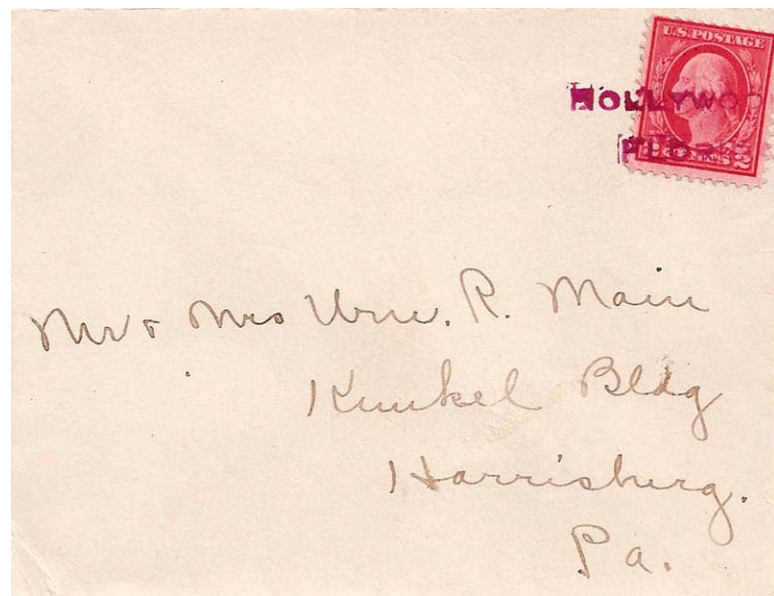 U.S. POSTAGE
HOLLYWOO
2 CENTS 2
Mr & Mrs Wm. R. Main
Kunkel Bldg
Harrisburg.
Pa.